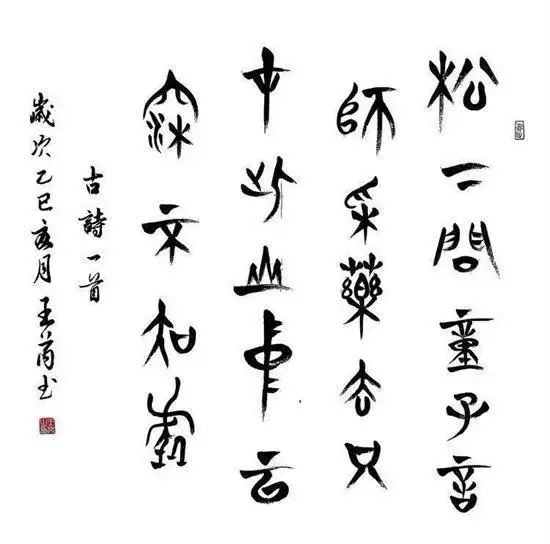 松下問童子言
師采藥去只
在此山中云
深不知處
古詩一首
歲次乙巳亥月王芮书